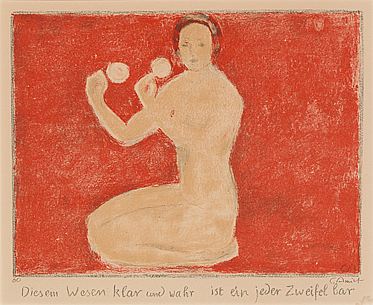 Diesem Wesen klar und wahr ist ein jeder Zweifel bar